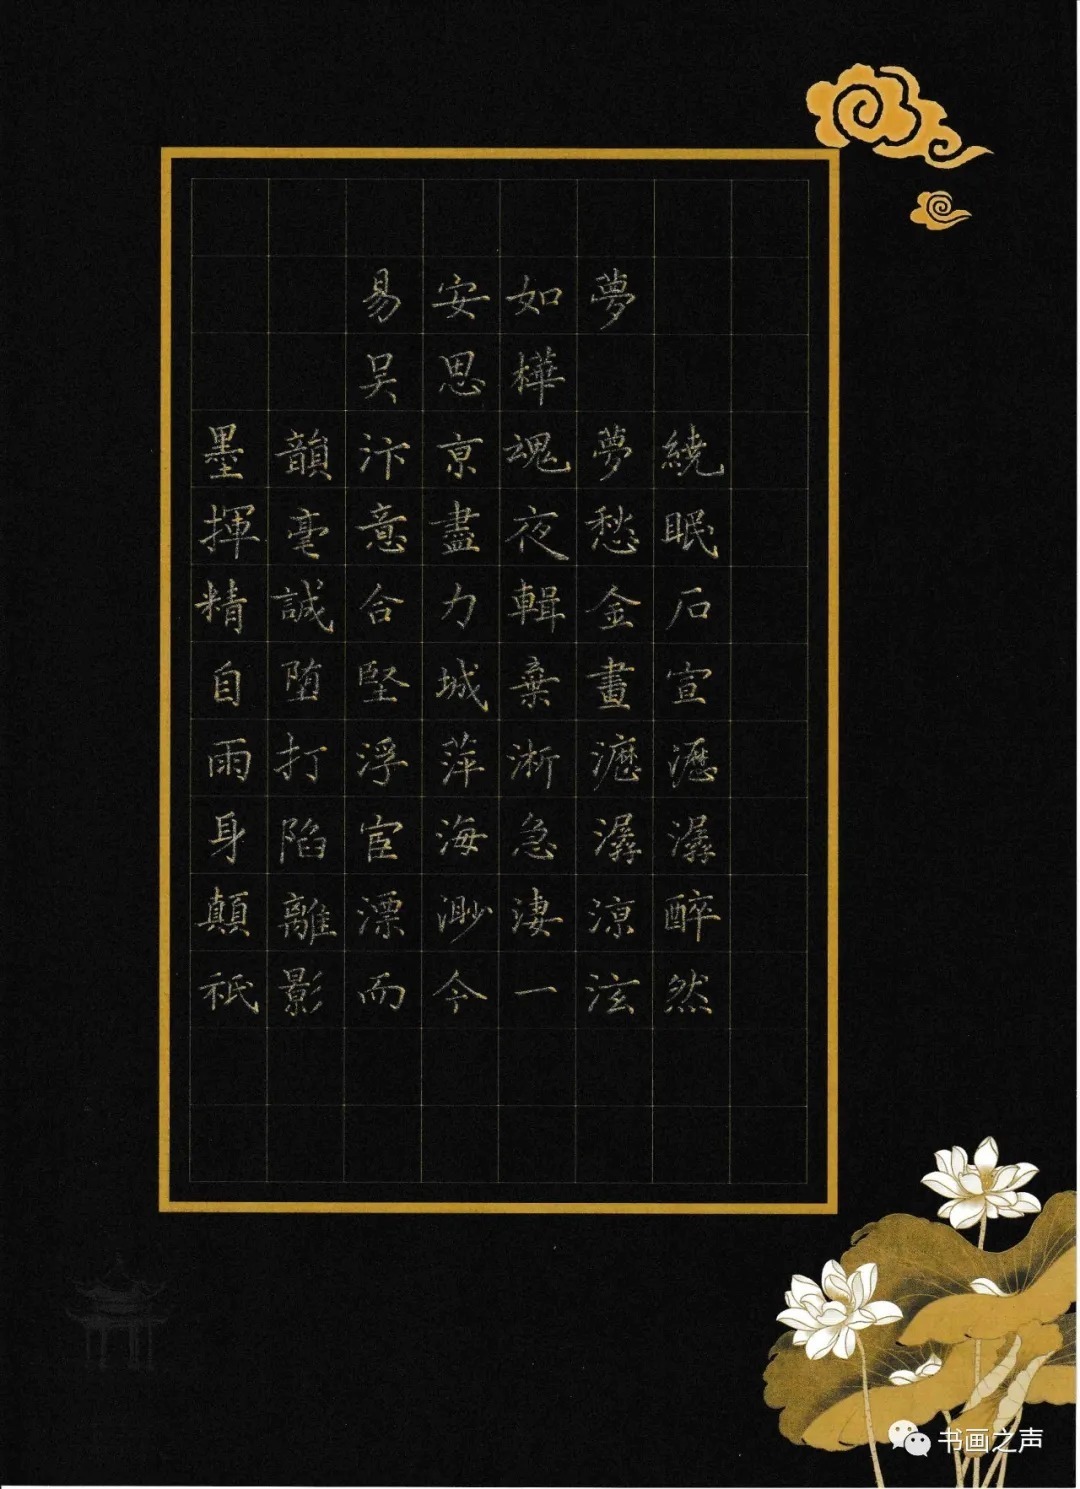 易安如夢
吴思樺
墨韻汴亰魂夢繞
揮毫意盡夜愁眠
精誠合力輯金石
自堕堅城棄畫宣
雨打浮萍淅瀝瀝
身陷宦海急潺潺
顛離漂渺淒涼醉
祇影而今一泫然
书画之声